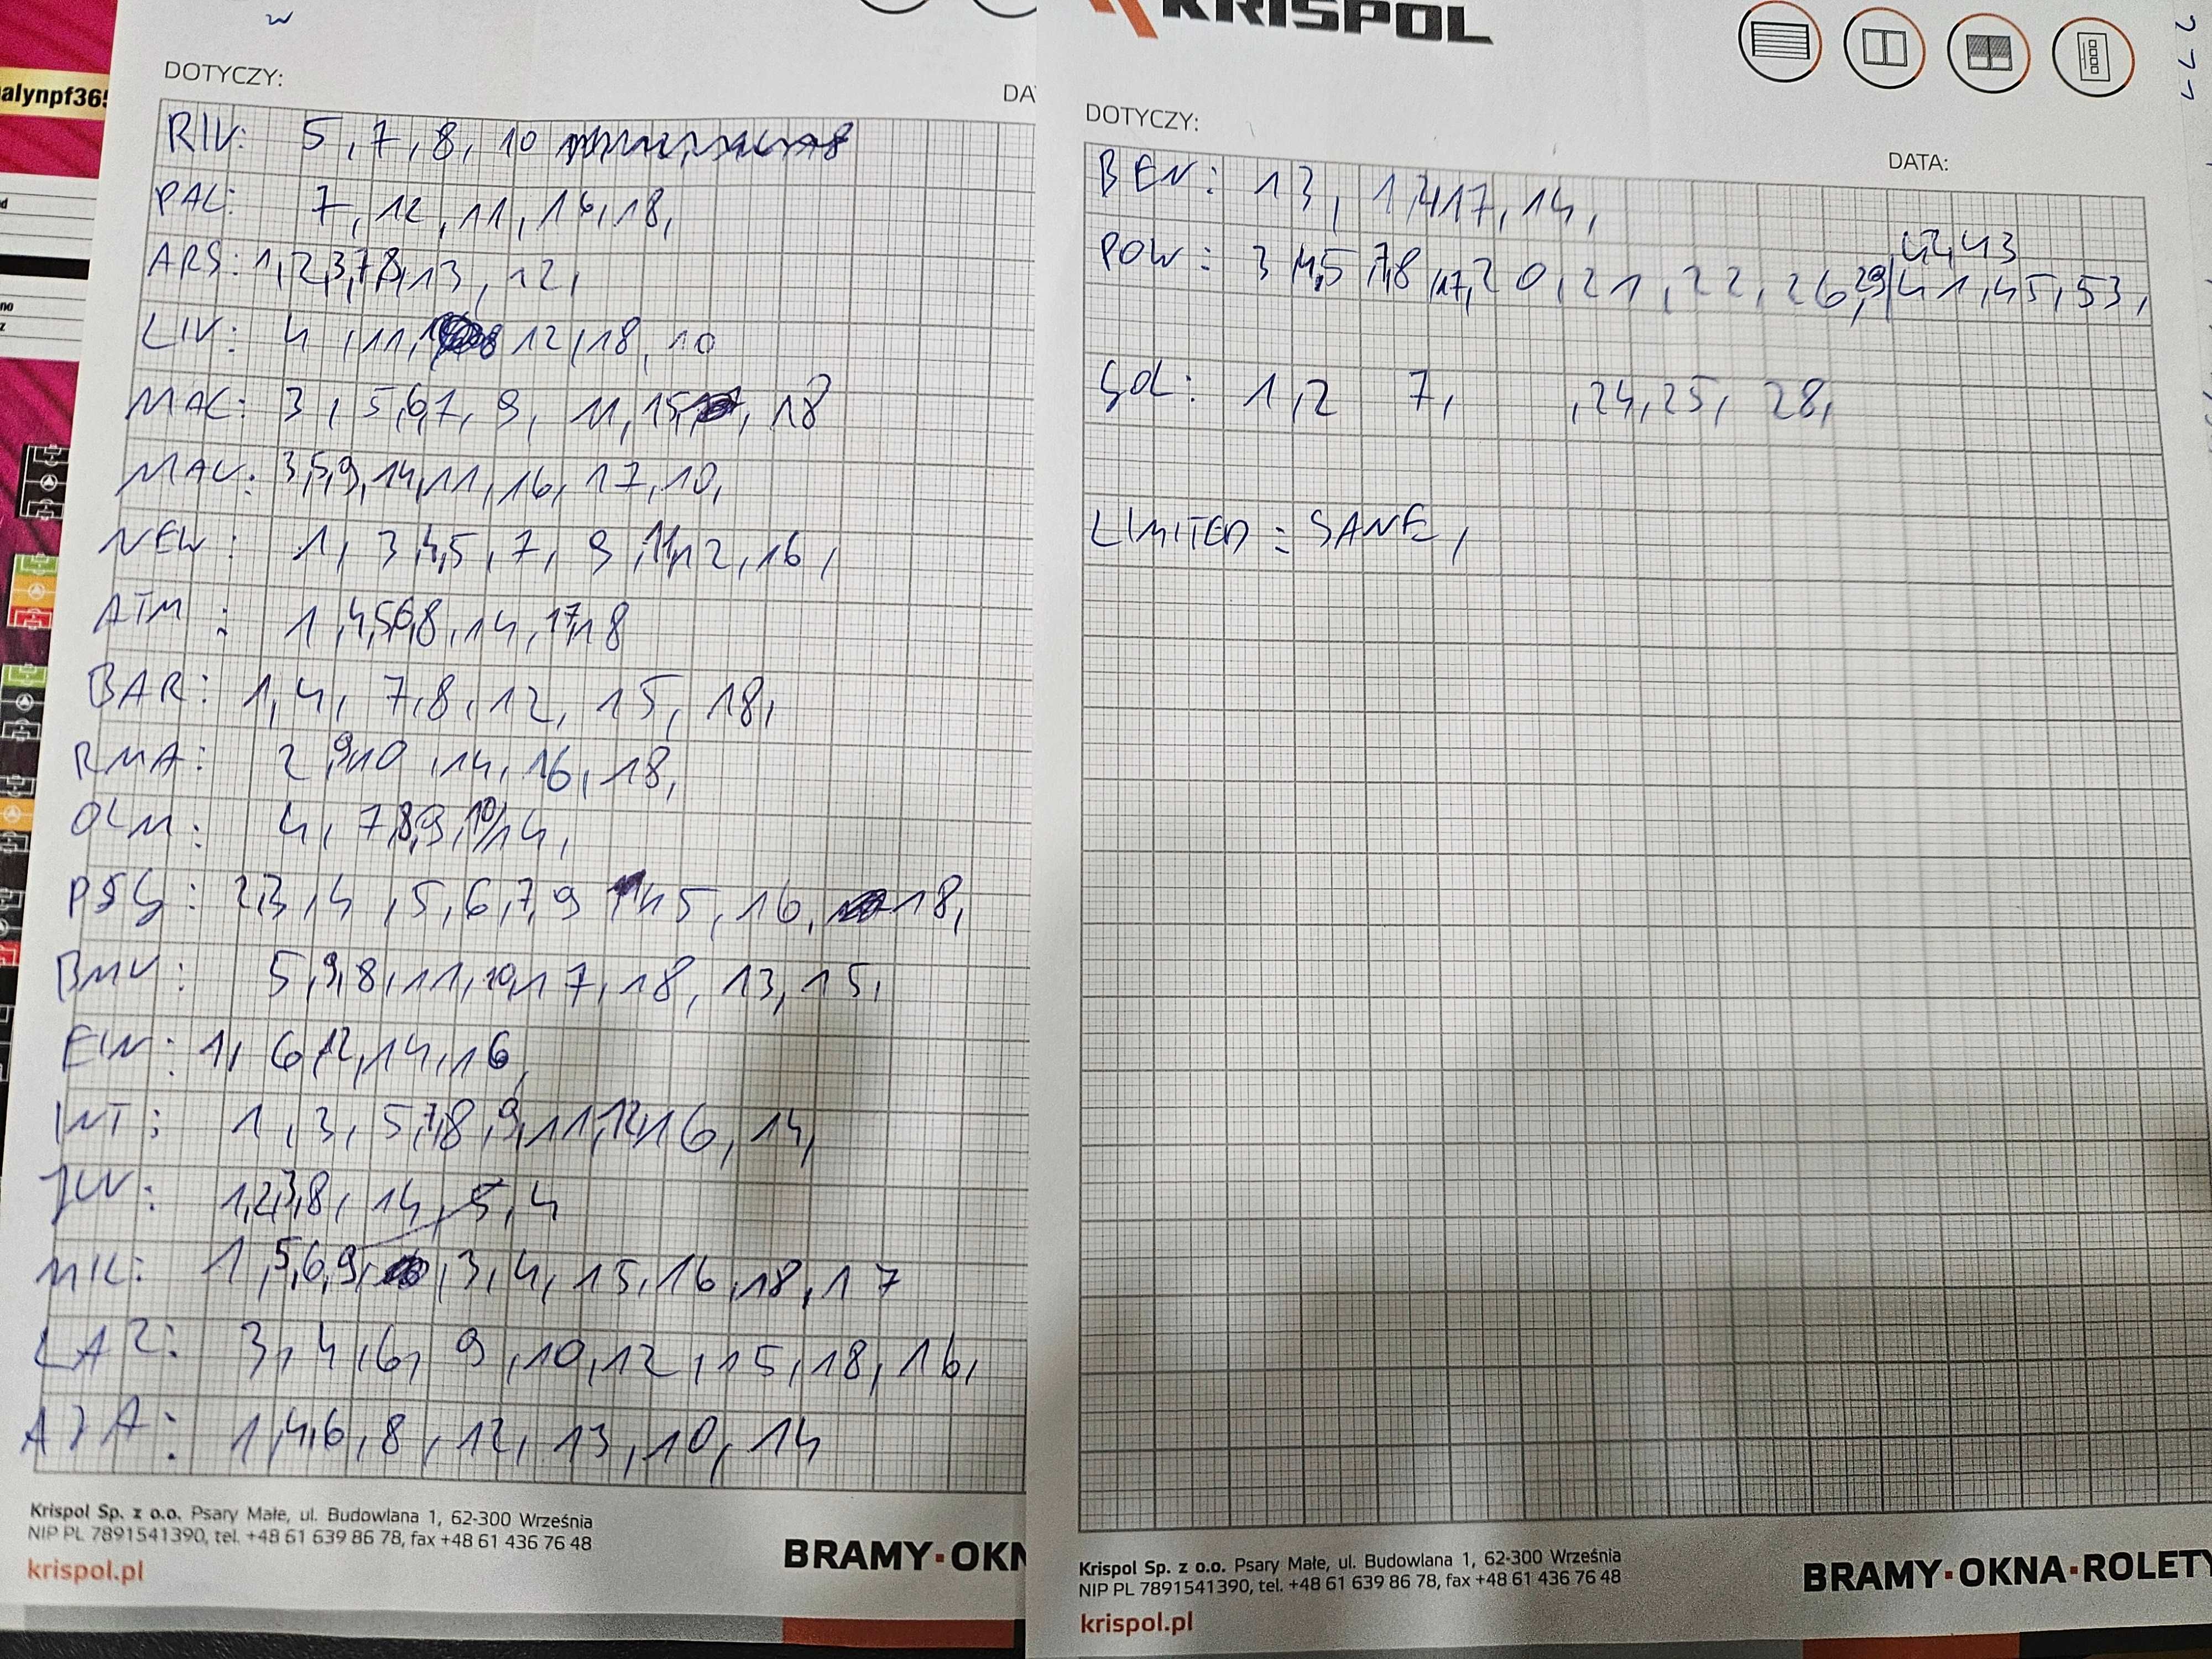 alynpf365
DOTYCZY:
DA
RIV: 5, 7, 8, 10
PAL: 7, 12, 11, 16, 18,
ARS: 1, 2, 3, 7, 8, 13, 12,
LIV: 4, 11, 12, 18, 10
MAC: 3, 5, 6, 7, 9, 11, 15, 18
MAU: 3, 5, 9, 14, 11, 16, 17, 10,
NEW: 1, 3, 4, 5, 7, 9, 11, 12, 16,
ATM: 1, 4, 5, 6, 8, 14, 17, 18
BAR: 1, 4, 7, 8, 12, 15, 18,
RMA: 2, 9, 10, 14, 16, 18,
OLM: 4, 7, 8, 9, 10, 14,
PSG: 2, 3, 4, 5, 6, 7, 9, 15, 16, 18,
BMU: 5, 9, 8, 11, 10, 17, 18, 13, 15,
EIN: 1, 6, 12, 14, 16,
INT: 1, 3, 5, 7, 8, 9, 11, 12, 16, 14,
JUV: 1, 2, 3, 8, 14, 5, 4
MIL: 1, 5, 6, 9, 3, 4, 15, 16, 18, 17
LAZ: 3, 4, 6, 9, 10, 12, 15, 18, 16,
AJA: 1, 4, 6, 8, 12, 13, 10, 14
Krispol Sp. z o.o. Psary Małe, ul. Budowlana 1, 62-300 Września
NIP PL 7891541390, tel. +48 61 639 86 78, fax +48 61 436 76 48
krispol.pl
BRAMY·OKN
KRISPOL
DOTYCZY:
DATA:
BEN: 13, 1, 4, 17, 14,
42, 43
POW: 3, 4, 5, 7, 8, 17, 20, 21, 22, 26, 29, 41, 45, 53,
GOL: 1, 2 7, , 24, 25, 28,
LIMITED: SANE,
Krispol Sp. z o.o. Psary Małe, ul. Budowlana 1, 62-300 Września
NIP PL 7891541390, tel. +48 61 639 86 78, fax +48 61 436 76 48
krispol.pl
BRAMY·OKNA·ROLETY